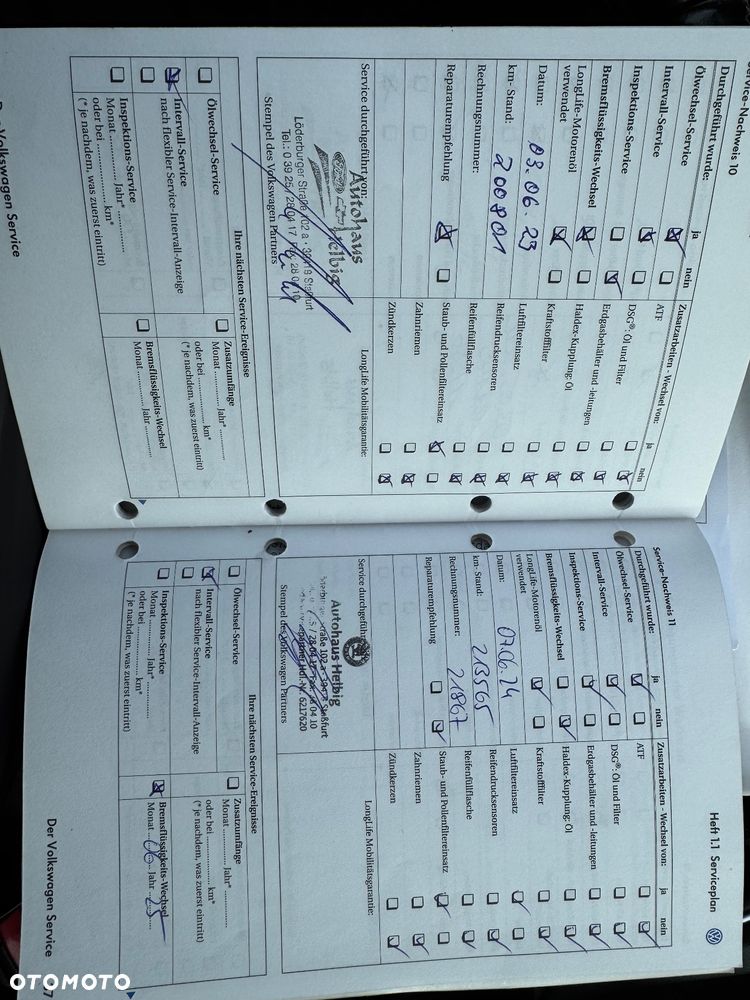 Service-Nachweis 10
Durchgeführt wurde: ja nein
Ölwechsel-Service
Intervall-Service
Inspektions-Service
Bremsflüssigkeits-Wechsel
LongLife-Motorenöl
verwendet
Datum: 09.06.23
km-Stand: 200801
Rechnungsnummer:
Reparaturempfehlung
Service durchgeführt von:
Autohaus
Helbig
Löderburger Straße 102 a
Stempel des Volkswagen Partners
Zusatzarbeiten - Wechsel von: ja nein
ATF
DSG®: Öl und Filter
Erdgasbehälter und -leitungen
Haldex-Kupplung: Öl
Kraftstofffilter
Luftfiltereinsatz
Reifendrucksensoren
Reifenfüllflasche
Staub- und Pollenfiltereinsatz
Zahnriemen
Zündkerzen
LongLife Mobilitätsgarantie:
Ihre nächsten Service-Ereignisse
Ölwechsel-Service
Intervall-Service
nach flexibler Service-Intervall-Anzeige
Inspektions-Service
Monat ............... Jahr* ...............
oder bei ............... km*
(* je nachdem, was zuerst eintritt)
Zusatzumfänge
Monat ............... Jahr* ...............
oder bei ............... km*
(* je nachdem, was zuerst eintritt)
Bremsflüssigkeits-Wechsel
Monat ............... Jahr ...............
Volkswagen Service
Service-Nachweis 11
Heft 1.1 Serviceplan
Durchgeführt wurde: ja nein
Ölwechsel-Service
Intervall-Service
Inspektions-Service
Bremsflüssigkeits-Wechsel
LongLife-Motorenöl
verwendet
Datum: 07.06.24
km-Stand: 213565
Rechnungsnummer: 21867
Reparaturempfehlung
Service durchgeführt
Autohaus Helbig
Stempel des Volkswagen Partners
Zusatzarbeiten - Wechsel von: ja nein
ATF
DSG®: Öl und Filter
Erdgasbehälter und -leitungen
Haldex-Kupplung: Öl
Kraftstofffilter
Luftfiltereinsatz
Reifendrucksensoren
Reifenfüllflasche
Staub- und Pollenfiltereinsatz
Zahnriemen
Zündkerzen
LongLife Mobilitätsgarantie:
Ihre nächsten Service-Ereignisse
Ölwechsel-Service
Intervall-Service
nach flexibler Service-Intervall-Anzeige
Inspektions-Service
Monat ............... Jahr* ...............
oder bei ............... km*
(* je nachdem, was zuerst eintritt)
Zusatzumfänge
Monat ............... Jahr* ...............
oder bei ............... km*
(* je nachdem, was zuerst eintritt)
Bremsflüssigkeits-Wechsel
Monat ...... Jahr 25
Der Volkswagen Service
OTOMOTO